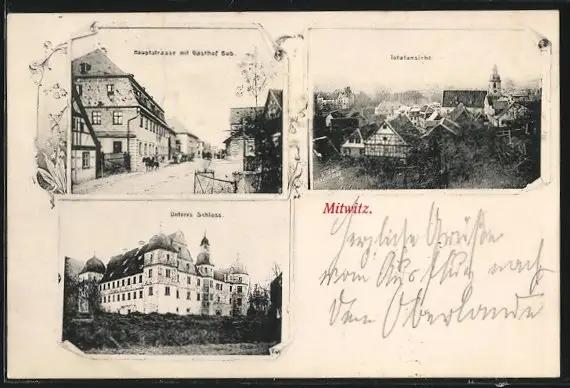 Hauptstrasse mit Gasthof Bub.
Totalansicht
Unteres Schloss.
Mitwitz.
Herzliche Grüße
vom Ausflug nach
dem Oberlande